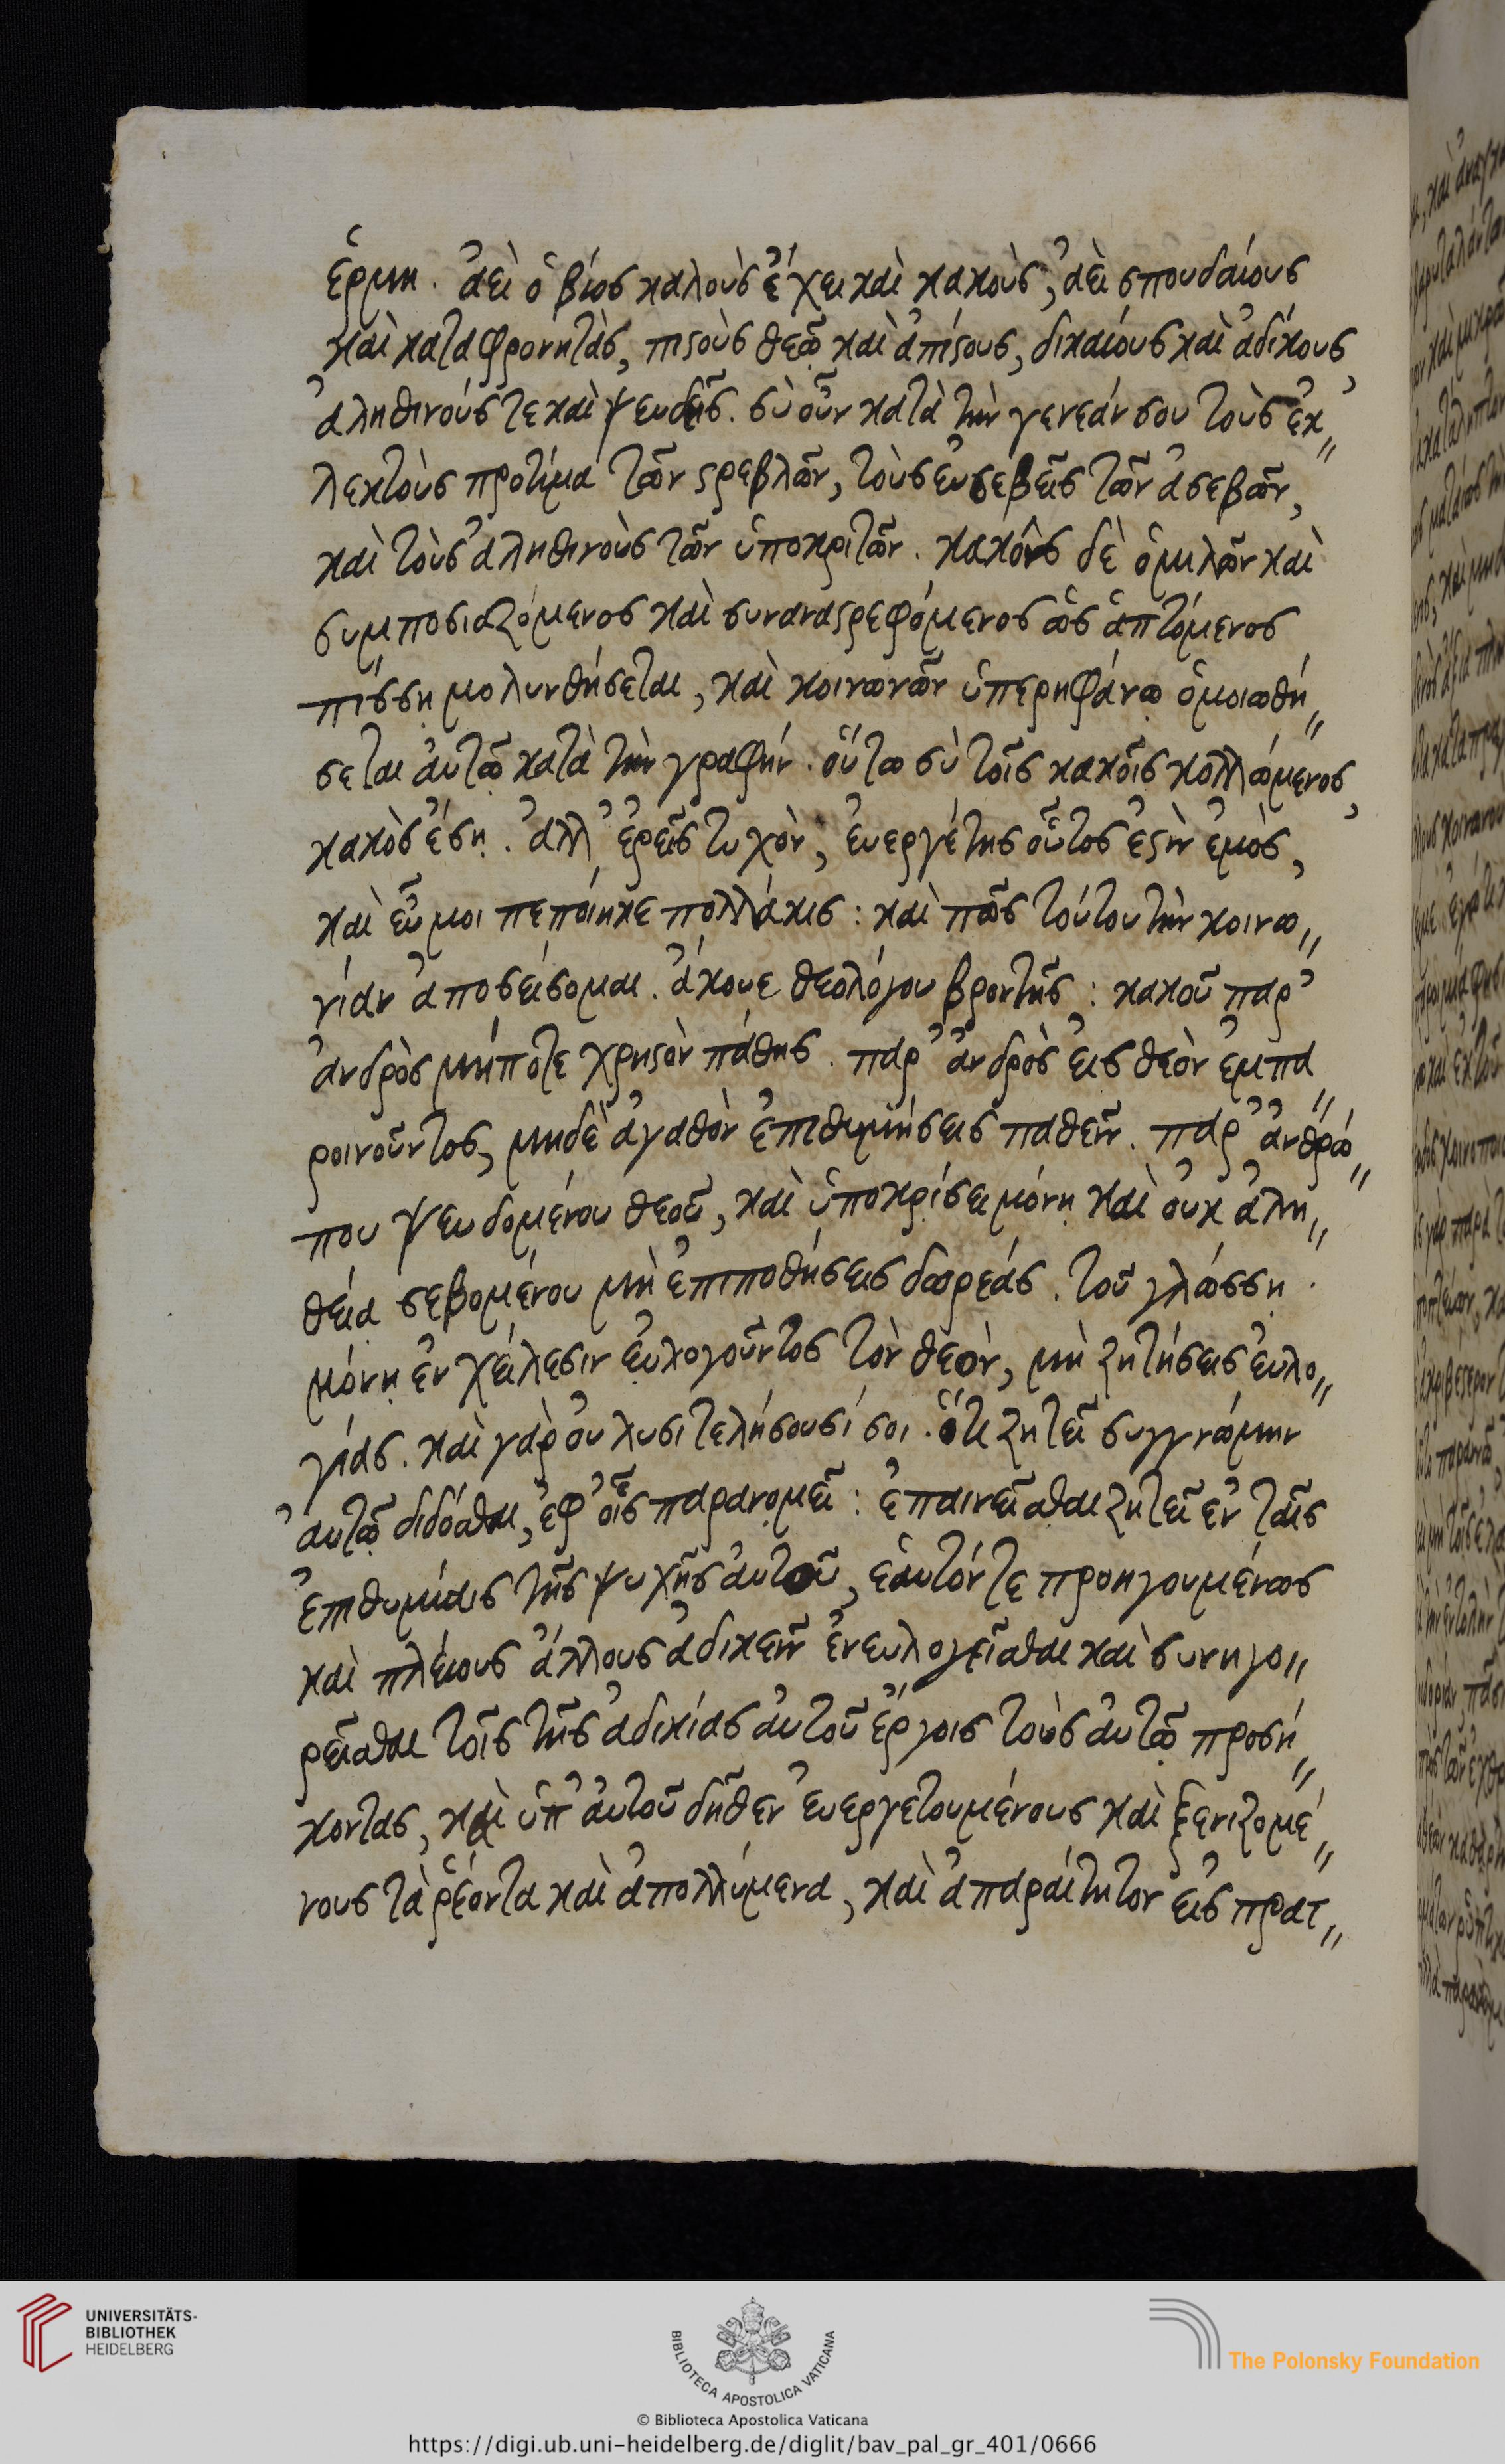 ἑρμη. ἀεὶ ὁ βίος καλοὺς ἔχει καὶ κακοὺς, ἀεὶ σπουδαίους
καὶ καταφρονητὰς, πιϛοὺς θεῷ καὶ ἀπίϛους, δικαίους καὶ ἀδίκους,
ἀληθινούς τε καὶ ψευδεῖς. σὺ οὖν κατὰ τὴν γενεάν σου τοὺς ἐκ〃
λεκτοὺς προτίμα τῶν ϛρεβλῶν, τοὺς εὐσεβεῖς τῶν ἀσεβῶν,
καὶ τοὺς ἀληθινοὺς τῶν ὑποκριτῶν. κακοῖς δὲ ὁμιλῶν καὶ
συμποσιαζόμενος καὶ συναναϛρεφόμενος ὡς ἁπτόμενος
πίσσῃ μολυνθήσεται, καὶ κοινωνῶν ὑπερηφάνῳ ὁμοιωθή〃
σεται αὐτῷ κατὰ τὴν γραφήν. οὕτω σὺ τοῖς κακοῖς κολλώμενος,
κακὸς ἔσῃ. ἀλλ' ἐρεῖς τυχὸν, εὐεργέτης οὗτος ἐϛὶν ἐμὸς,
καὶ εὖ μοι πεποίηκε πολλάκις: καὶ πῶς τούτου τὴν κοινω〃
νίαν ἀποσείσομαι. ἄκουε θεολόγου βροντῆς: κακοῦ παρ'
ἀνδρὸς μήποτε χρηϛὸν πάθῃς. παρ' ἀνδρὸς εἰς θεὸν ἐμπα〃
ροινοῦντος, μηδὲ ἀγαθὸν ἐπιθυμήσεις παθεῖν. παρ' ἀνθρώ〃
που ψευδομένου θεοῦ, καὶ ὑποκρίσει μόνῃ καὶ οὐκ ἀλη〃
θείᾳ σεβομένου μὴ ἐπιποθήσεις δωρεάς. τοῦ γλώσσῃ
μόνῃ ἐν χείλεσιν εὐλογοῦντος τὸν θεὸν, μὴ ζητήσεις εὐλο〃
γίας. καὶ γὰρ οὐ λυσιτελήσουσί σοι. ὅτι ζητεῖ συγγνώμην
αὐτῷ δίδοσθαι, ἐφ' οἷς παρανομεῖ: ἐπαινεῖσθαι ζητεῖ ἐν ταῖς
ἐπιθυμίαις τῆς ψυχῆς αὐτοῦ, ἑαυτόν τε προηγουμένως
καὶ πλείους ἄλλους ἀδικεῖν ἐνευλογεῖσθαι καὶ συνηγο〃
ρεῖσθαι τοῖς τῆς ἀδικίας αὐτοῦ ἔργοις τοὺς αὐτῷ προσή〃
κοντας, καὶ ὑπ' αὐτοῦ δῆθεν εὐεργετουμένους καὶ ξενιζομέ〃
νους τὰ ῥέοντα καὶ ἀπολλύμενα, καὶ ἀπαραίτητον εἰς πρατ〃
UNIVERSITÄTS-
BIBLIOTHEK
HEIDELBERG
BIBLIOTECA APOSTOLICA VATICANA
The Polonsky Foundation
© Biblioteca Apostolica Vaticana
https://digi.ub.uni-heidelberg.de/diglit/bav_pal_gr_401/0666